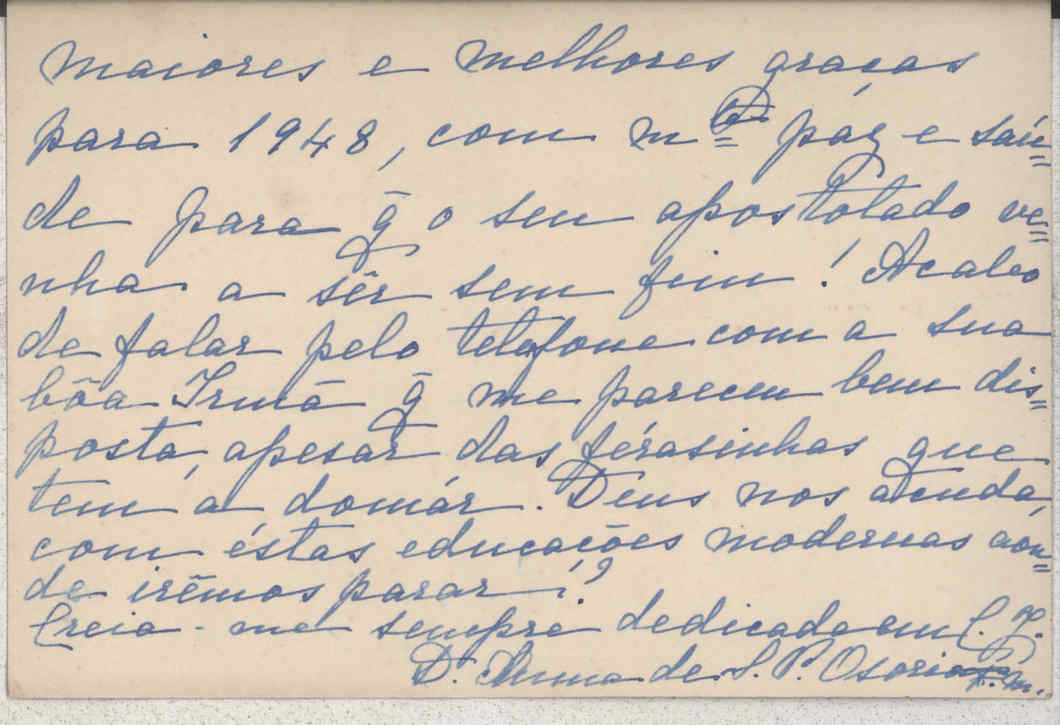 maiores e melhores graças
para 1948, com mta páz e saú=
de para q̄ o seu apostolado ve=
nha a sêr sem fim! Acabo
de falar pelo telefone com a sua
bôa Irmã q̄ me pareceu bem dis=
posta, apesar das férasinhas que
tem a domár. Deus nos atenda,
com éstas educações modernas aon=
de irêmos parar!?
Creia-me sempre dedicada em C. J.
D. Anna de S. P. Osorio